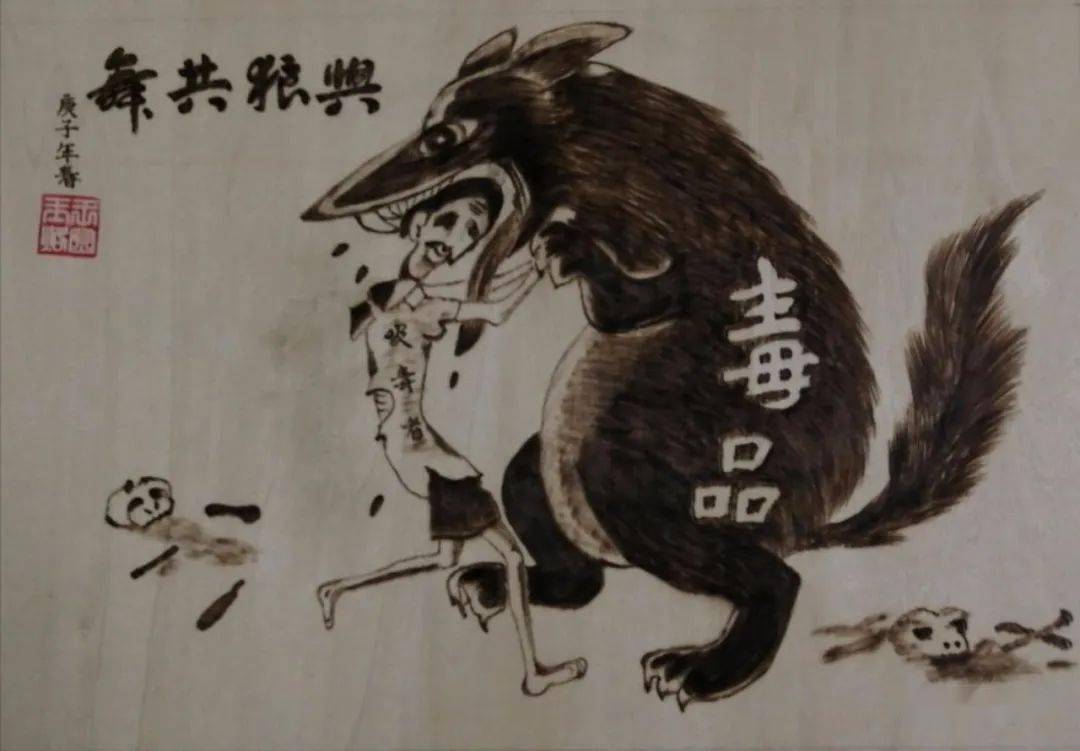 與狼共舞
庚子年春
吸毒者
毒品